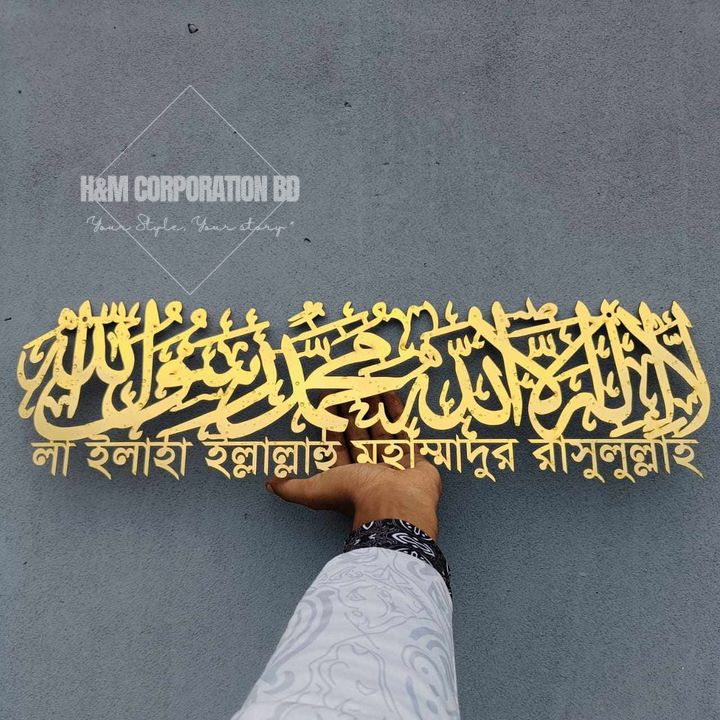 H&M CORPORATION BD
Your Style, Your story"
لا إله إلا الله محمد رسول الله
লা ইলাহা ইল্লাল্লাহু মহাম্মাদুর রাসুলুল্লাহ